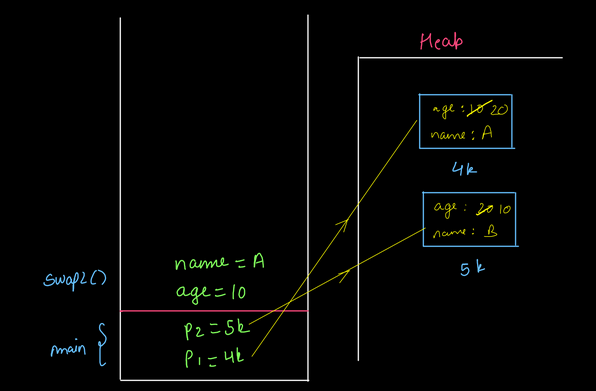 Heap
age : 10 20
name : A
4k
age : 20 10
name : B
5k
swap2()
name = A
age = 10
main {
P2 = 5k
P1 = 4k